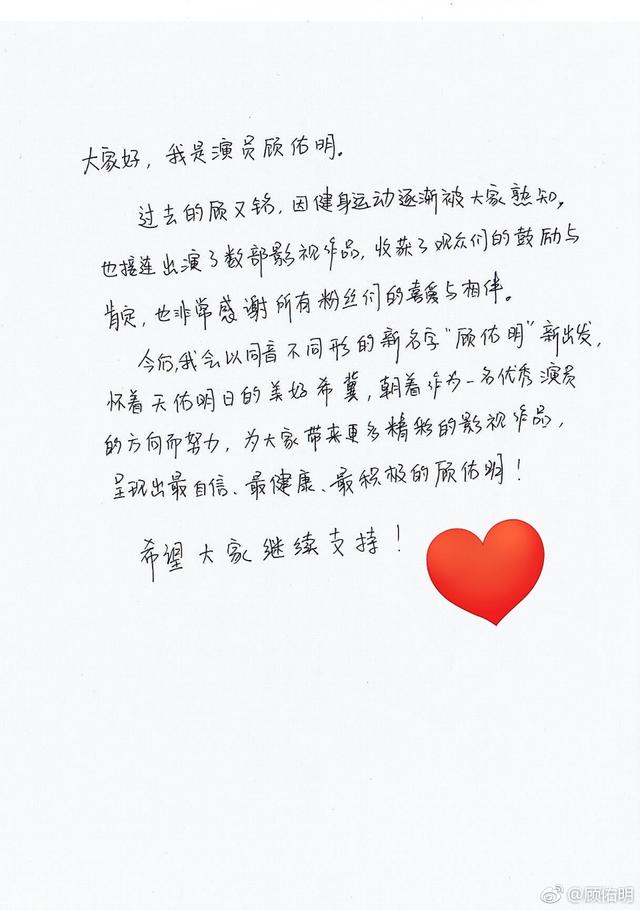 大家好，我是演员顾佑明。
过去的顾又铭，因健身运动逐渐被大家熟知。
也接连出演了数部影视作品，收获了观众们的鼓励与
肯定，也非常感谢所有粉丝们的喜爱与相伴。
今后，我会以同音不同形的新名字“顾佑明”新出发，
怀着天佑明日的美好希冀，朝着作为一名优秀演员
的方向而努力，为大家带来更多精彩的影视作品，
呈现出最自信、最健康、最积极的顾佑明！
希望大家继续支持！
@顾佑明